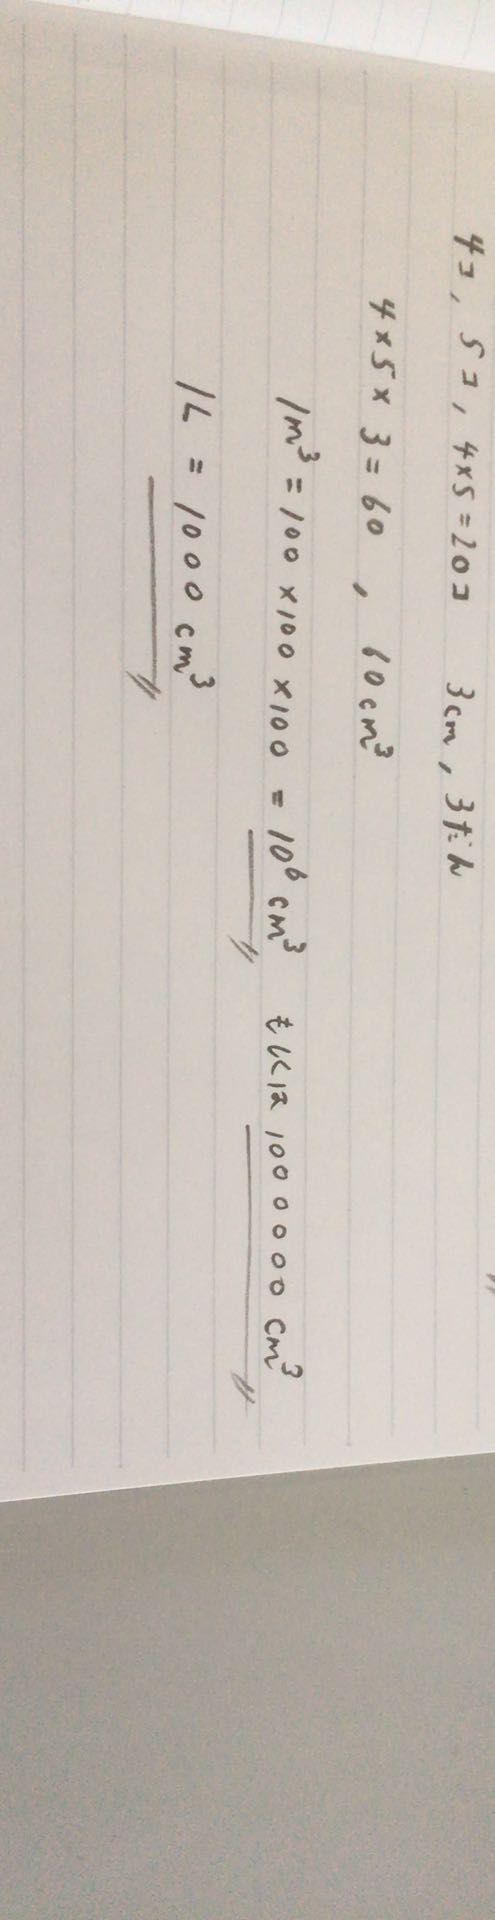 4コ, 5コ, 4×5=20コ 3cm, 3だん
4×5×3=60, 60cm³
1m³=100×100×100=10⁶cm³ もしくは 1000000cm³
1L=1000cm³